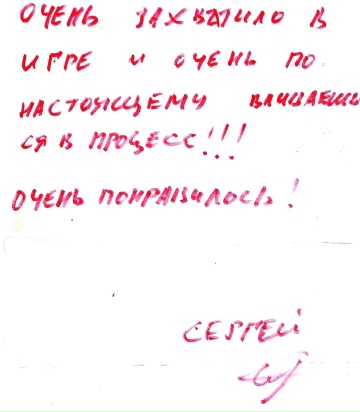 ОЧЕНЬ ЗАХВАТИЛО В
ИГРЕ И ОЧЕНЬ ПО
НАСТОЯЩЕМУ ВЛИВАЕШЬ
СЯ В ПРОЦЕСС!!!
ОЧЕНЬ ПОНРАВИЛОСЬ!
СЕРГЕЙ